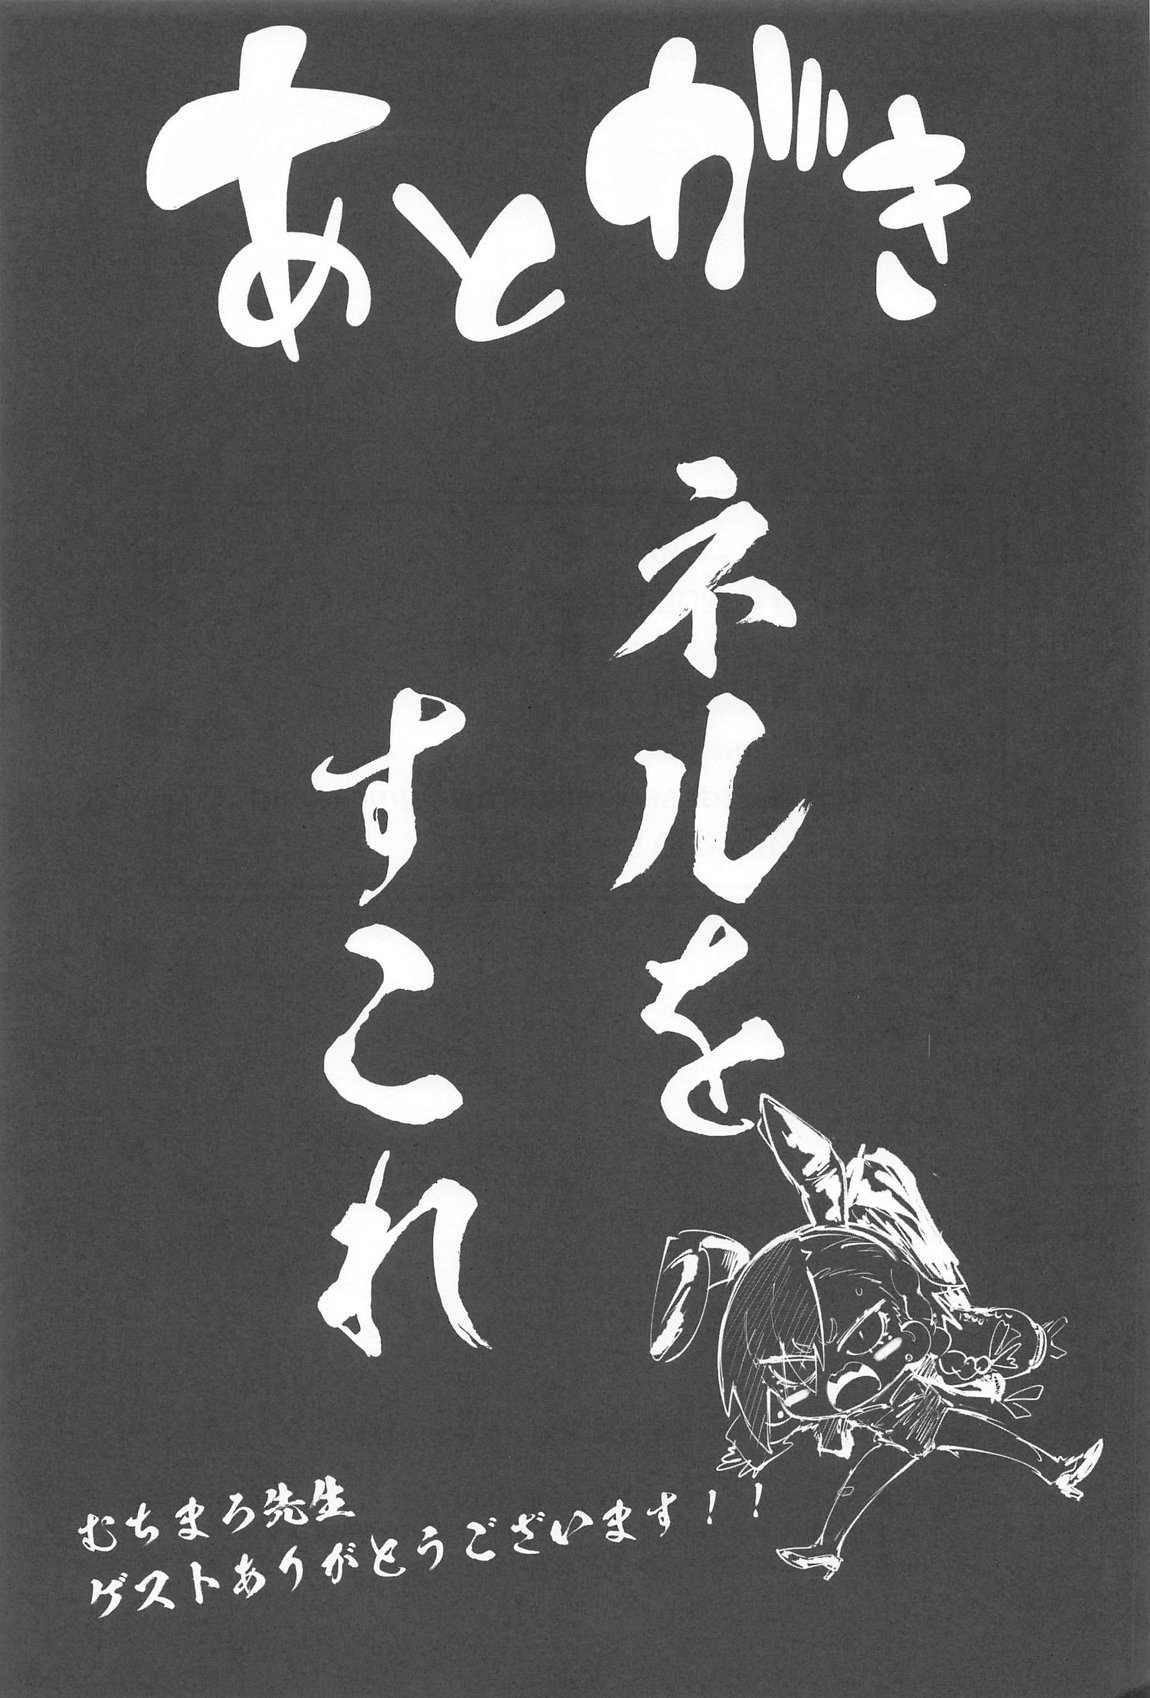 あとがき
ネルを
すこれ
むちまろ先生
ゲストありがとうございます!!